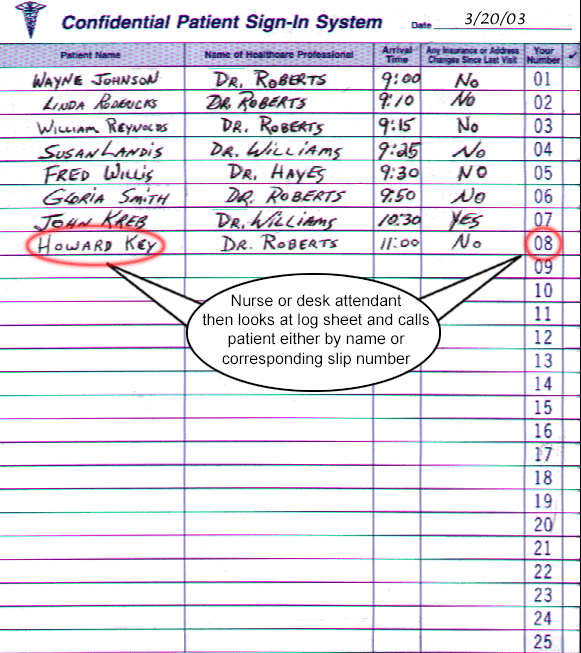 Confidential Patient Sign-In System Date 3/20/03
Patient Name Name of Healthcare Professional Arrival Time Any Insurance or Address Changes Since Last Visit Your Number ✓
WAYNE JOHNSON DR. ROBERTS 9:00 NO 01
LINDA RODERICKS DR. ROBERTS 9:10 NO 02
WILLIAM REYNOLDS DR. ROBERTS 9:15 NO 03
SUSAN LANDIS DR. WILLIAMS 9:25 NO 04
FRED WILLIS DR. HAYES 9:30 NO 05
GLORIA SMITH DR. ROBERTS 9:50 NO 06
JOHN KREB DR. WILLIAMS 10:30 YES 07
HOWARD KEY DR. ROBERTS 11:00 NO 08
09
10
11
12
13
14
15
16
17
18
19
20
21
22
23
24
25
Nurse or desk attendant
then looks at log sheet and calls
patient either by name or
corresponding slip number